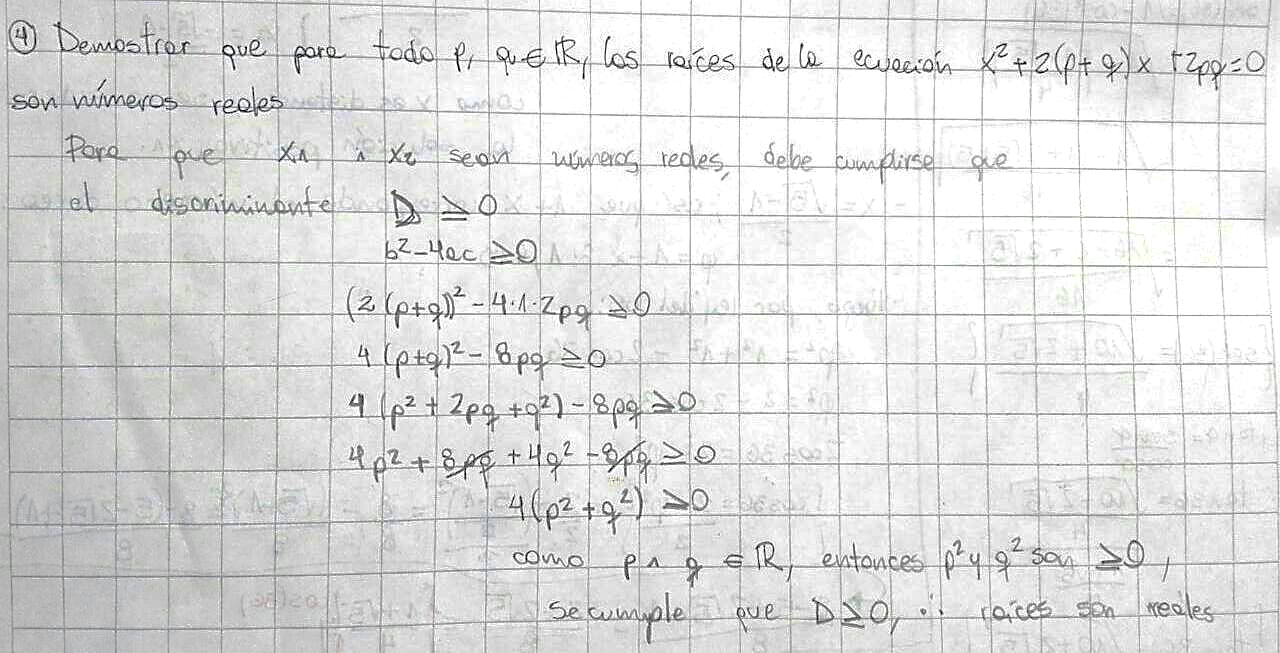 ④ Demostrar que para todo p, q ∈ ℝ, las raíces de la ecuación x² + 2(p+q)x + 2pq = 0
son números reales
Para que x₁ ∧ x₂ sean números reales, debe cumplirse que
el discriminante D ≥ 0
b² - 4ac ≥ 0
(2(p+q))² - 4·1·2pq ≥ 0
4(p+q)² - 8pq ≥ 0
4(p² + 2pq + q²) - 8pq ≥ 0
4p² + 8pq + 4q² - 8pq ≥ 0
4(p² + q²) ≥ 0
como p ∧ q ∈ ℝ, entonces p² y q² son ≥ 0,
se cumple que D ≥ 0, ∴ raíces son reales